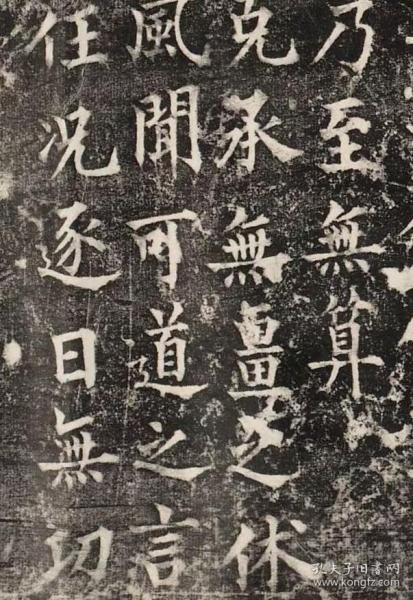 乃至無算
克承無畺之休
風聞可道之言
任況逐日無功
孔夫子旧书网
www.kongfz.com